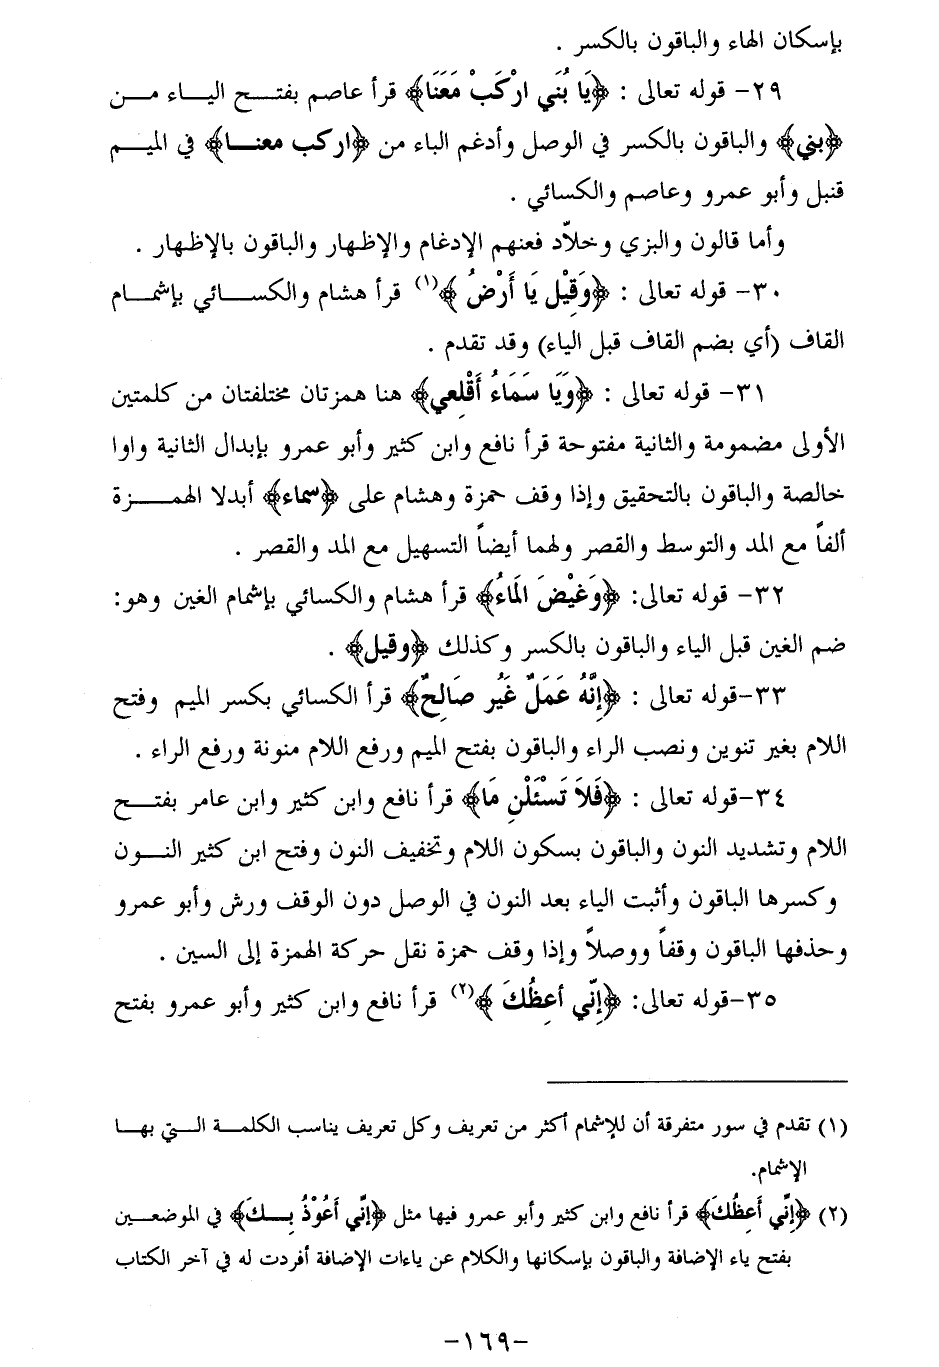 بإسكان الهاء والباقون بالكسر .
٢٩- قوله تعالى : ﴿يَا بُنَي ارْكَبْ مَعَنَا﴾ قرأ عاصم بفتح الياء من
﴿بني﴾ والباقون بالكسر في الوصل وأدغم الباء من ﴿اركب معنا﴾ في الميم
قنبل وأبو عمرو وعاصم والكسائي .
وأما قالون والبزي وخلاّد فعنهم الإدغام والإظهار والباقون بالإظهار .
٣٠- قوله تعالى : ﴿وَقِيْل يَا أَرْضُ ﴾(١) قرأ هشام والكسائي بإشمام
القاف (أي بضم القاف قبل الياء) وقد تقدم .
٣١- قوله تعالى : ﴿وَيَا سَمَاءُ أَقْلِعي﴾ هنا همزتان مختلفتان من كلمتين
الأولى مضمومة والثانية مفتوحة قرأ نافع وابن كثير وأبو عمرو بإبدال الثانية واوا
خالصة والباقون بالتحقيق وإذا وقف حمزة وهشام على ﴿سماء﴾ أبدلا الهمزة
ألفاً مع المد والتوسط والقصر ولهما أيضاً التسهيل مع المد والقصر .
٣٢- قوله تعالى: ﴿وَغِيْضَ الَماءُ﴾ قرأ هشام والكسائي بإشمام الغين وهو:
ضم الغين قبل الياء والباقون بالكسر وكذلك ﴿وقيل﴾ .
٣٣-قوله تعالى : ﴿إِنَّهُ عَمَلٌ غَيُر صَالِحٌ﴾ قرأ الكسائي بكسر الميم وفتح
اللام بغير تنوين ونصب الراء والباقون بفتح الميم ورفع اللام منونة ورفع الراء .
٣٤-قوله تعالى : ﴿فَلاَ تَسْئَلْنِ مَا﴾ قرأ نافع وابن كثير وابن عامر بفتح
اللام وتشديد النون والباقون بسكون اللام وتخفيف النون وفتح ابن كثير النون
وكسرها الباقون وأثبت الياء بعد النون في الوصل دون الوقف ورش وأبو عمرو
وحذفها الباقون وقفاً ووصلاً وإذا وقف حمزة نقل حركة الهمزة إلى السين .
٣٥-قوله تعالى: ﴿إِنّي أعِظُكَ ﴾(٢) قرأ نافع وابن كثير وأبو عمرو بفتح
(١) تقدم في سور متفرقة أن للإشمام أكثر من تعريف وكل تعريف يناسب الكلمة التي بها
الإشمام.
(٢) ﴿إِنِّي أَعِظُكَ﴾ قرأ نافع وابن كثير وأبو عمرو فيها مثل ﴿إنِّي أَعُوْذُ بِكَ﴾ في الموضعين
بفتح ياء الإضافة والباقون بإسكانها والكلام عن ياءات الإضافة أفردت له في آخر الكتاب
-١٦٩-